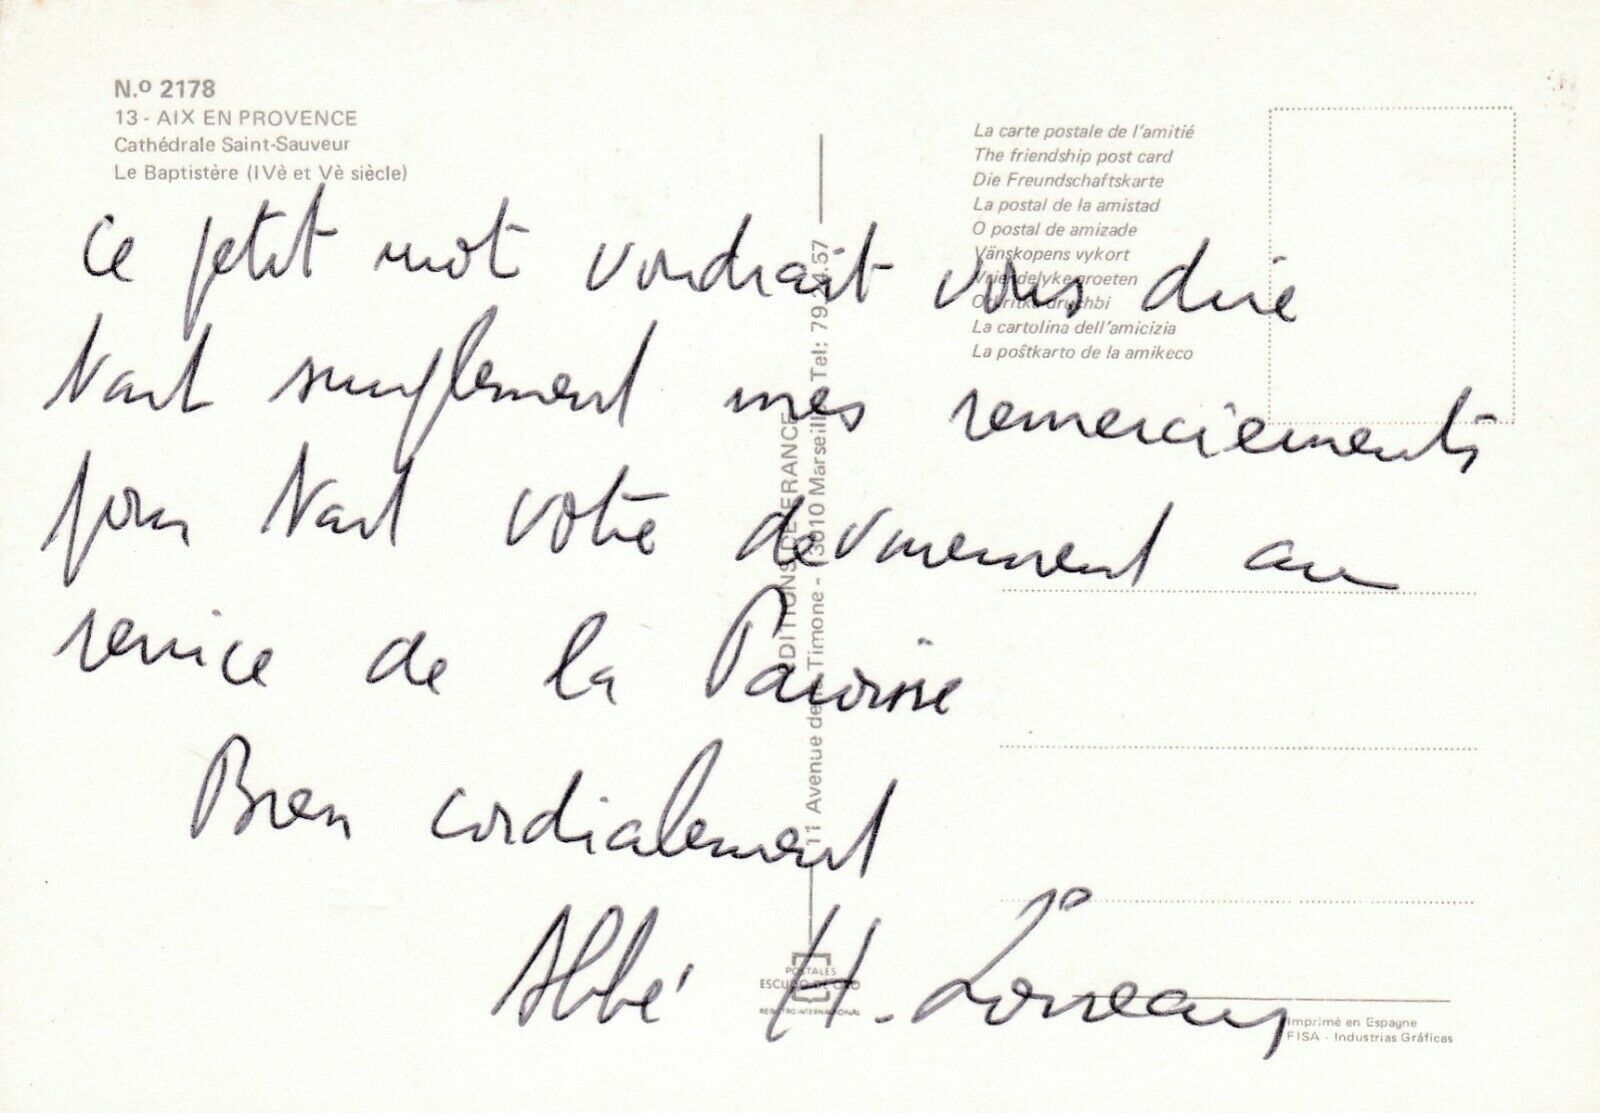 N.º 2178
13 - AIX EN PROVENCE
Cathédrale Saint-Sauveur
Le Baptistère (IVè et Vè siècle)
La carte postale de l'amitié
The friendship post card
Die Freundschaftskarte
La postal de la amistad
O postal de amizade
Vänskopens vykort
Vriendelyke groeten
Otkritka druchbi
La cartolina dell'amicizia
La poŝtkarto de la amikeco
Ce petit mot voudrait vous dire
tout simplement mes remerciements
pour tout votre dévouement au
service de la Paroisse
Bien cordialement
Abbé H.
EDITIONS DE FRANCE
11 Avenue de la Timone - 13010 Marseille Tel: 79.24.57
POSTALES
ESCUDO DE ORO
REGISTRO INTERNACIONAL
Imprimé en Espagne
FISA - Industrias Gráficas